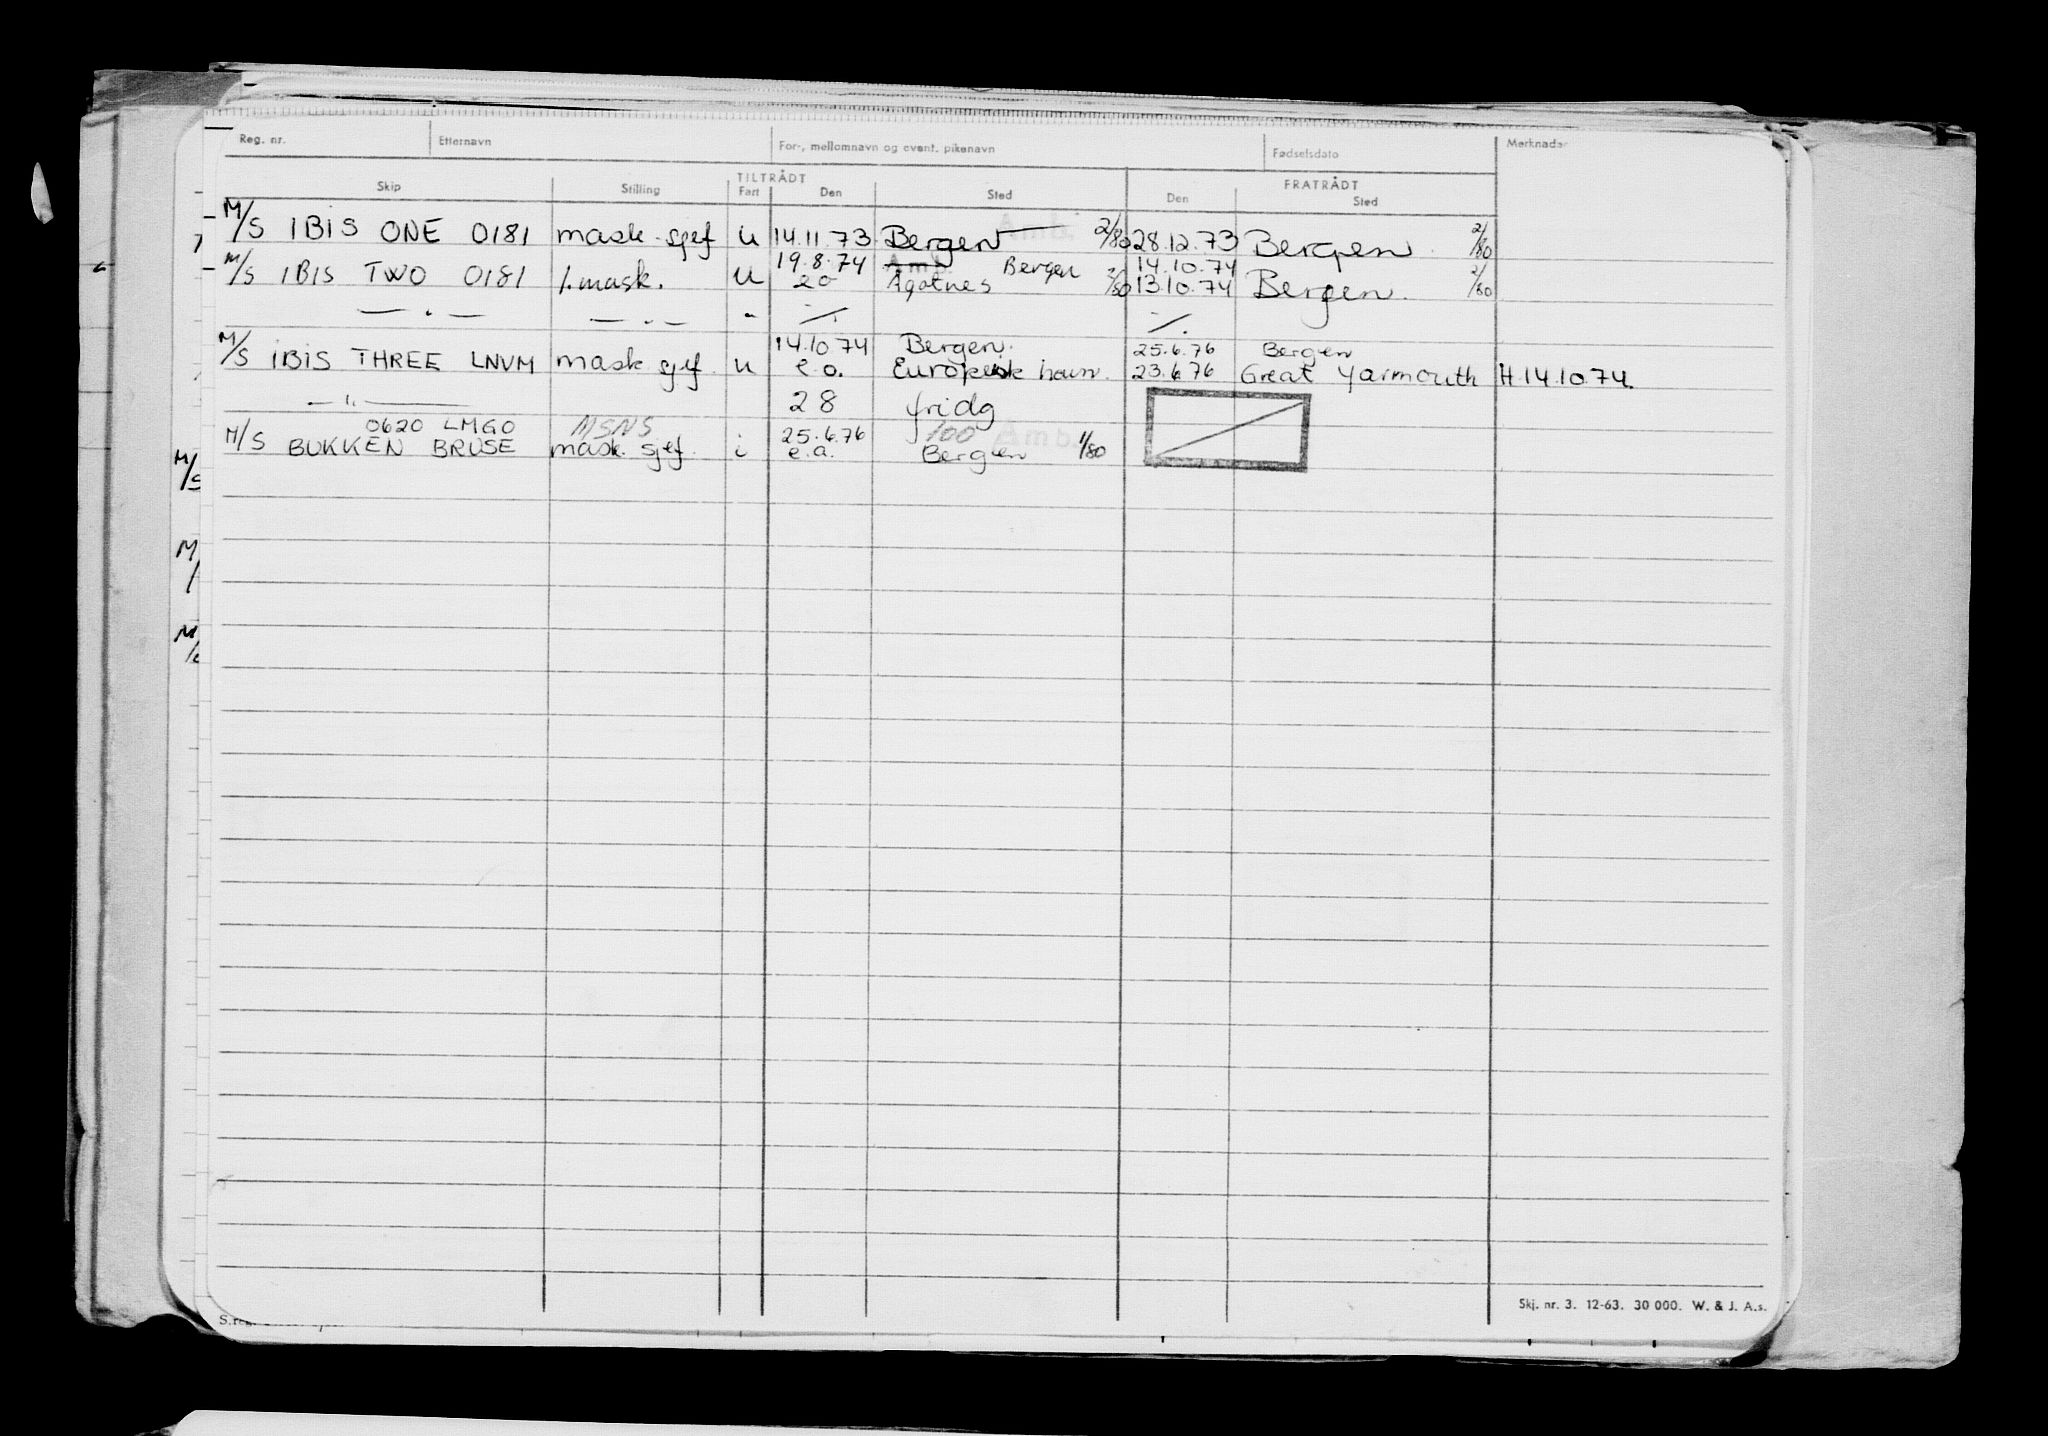 Reg. nr. Etternavn For-, mellomnavn og event. pikenavn Fødselsdato Merknader
TILTRÅDT FRATRÅDT
Skip Stilling Fart Den Sted Den Sted
M/S IBIS ONE 0181 mask. sjef u 14.11.73 Bergen Amb. 2/80 28.12.73 Bergen 2/80
19.8.74 Amb. Bergen 14.10.74
M/S IBIS TWO 0181 1.mask. u 20 Ågotnes 2/80 13.10.74 Bergen. 2/80
— " — — " — " /. /.
14.10.74 Bergen. 25.6.76 Bergen
M/S IBIS THREE LNVM mask sjef. u e.o. Europeisk havn. 23.6.76 Great Yarmouth H.14.10.74.
— " — 28 fridg
0620 LMGO MSNS 25.6.76 100 Amb.
M/S BUKKEN BRUSE mask. sjef. i e.a. Bergen 1/80
M/S
M/
M/
Skj. nr. 3. 12-63. 30 000. W. & J. A.s.